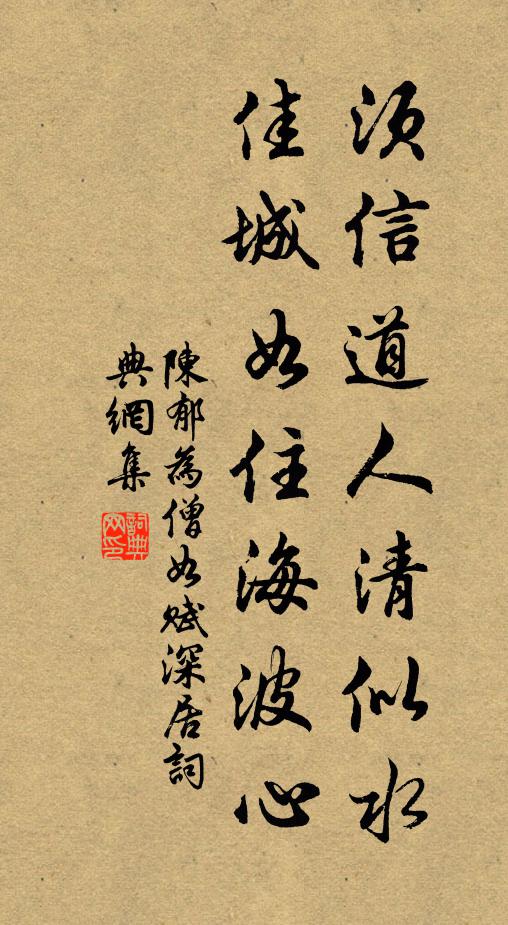 須信道人清似水
佳城如住海波心
陳郁為僧如賦深居詞
典網集
詞典網印